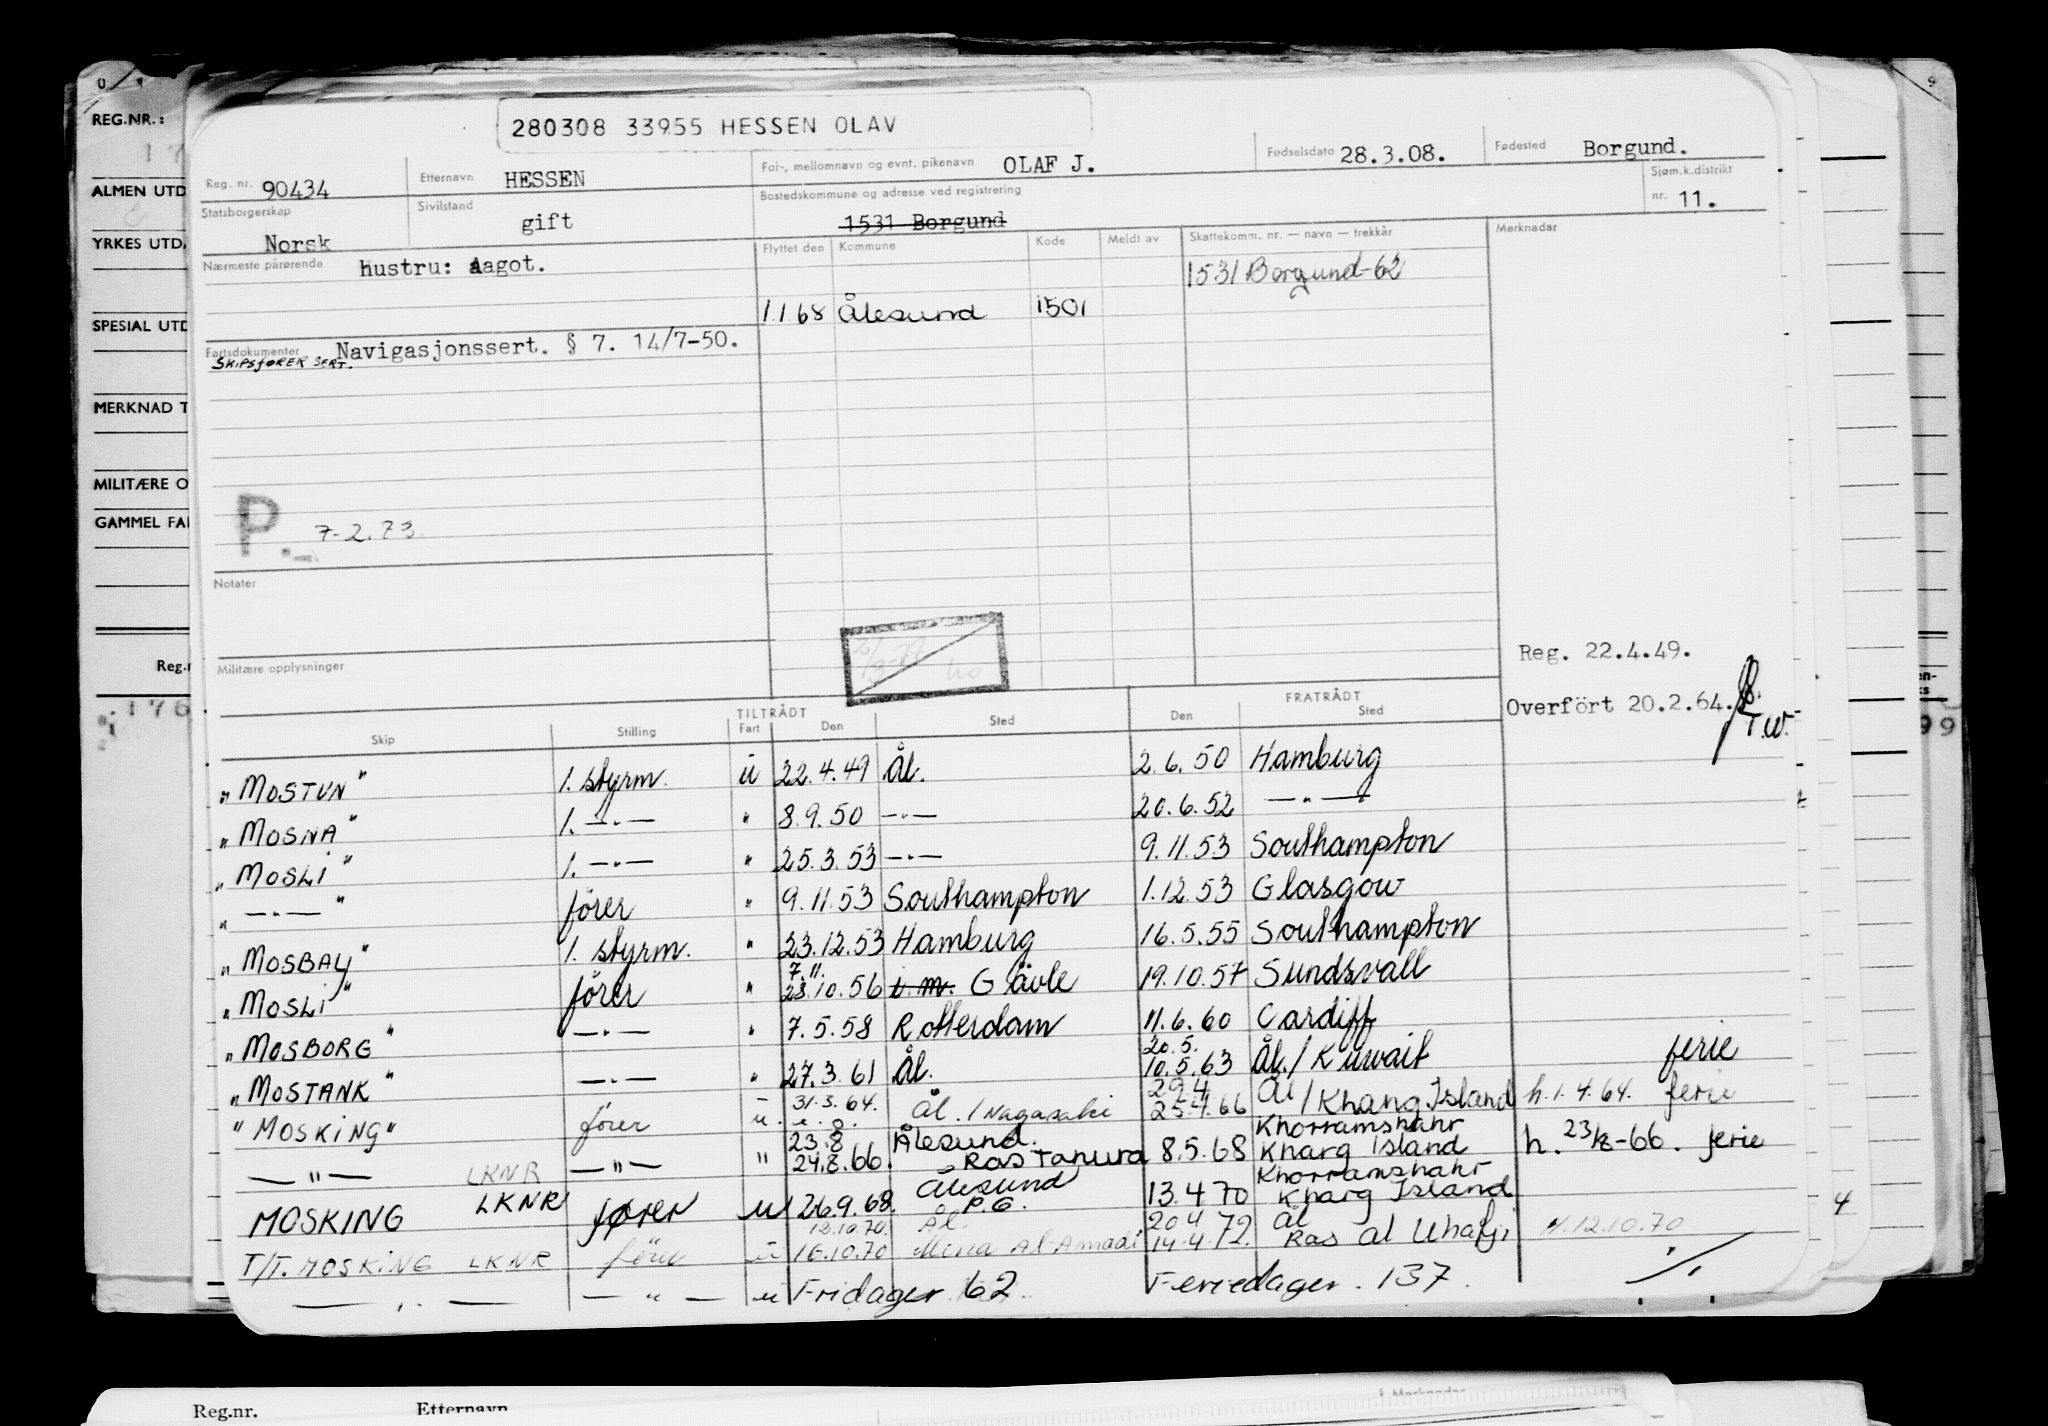 280308 33955 HESSEN OLAV
Reg. nr. 90434 Etternavn HESSEN For-, mellomnavn og evnt. pikenavn OLAF J. Fødselsdato 28.3.08. Fødested Borgund.
Statsborgerskap Norsk Sivilstand gift Bostedskommune og adresse ved registrering 1531 Borgund Sjøm.k.distrikt nr. 11.
Nærmeste pårørende Hustru: Aagot. Flyttet den Kommune Kode Meldt av Skattekomm. nr. — navn — trekkår Merknader
1531 Borgund-62
1.1.68 Ålesund 1501
Fartsdokumenter Navigasjonssert. § 7. 14/7-50.
SKIPSFØRER SERT.
P. 7.2.73.
Notater
Militære opplysninger
Reg. 22.4.49.
Overført 20.2.64.
T.W.
TILTRÅDT FRATRÅDT
Skip Stilling Fart Den Sted Den Sted
"MOSTUN" 1. styrm. u 22.4.49 Ål. 2.6.50 Hamburg
"MOSNA" 1. —"— " 8.9.50 —"— 20.6.52 —"—
"MOSLI" 1. —"— " 25.3.53 —"— 9.11.53 Southampton
" —"— " fører " 9.11.53 Southampton 1.12.53 Glasgow
"MOSBAY" 1. styrm. " 23.12.53 Hamburg 16.5.55 Southampton
7.11.
"MOSLI" fører " 28.10.56 u.m. Gävle 19.10.57 Sundsvall
"MOSBORG" —"— " 7.5.58 Rotterdam 11.6.60 Cardiff
20.5.
"MOSTANK" —"— " 27.3.61 Ål. 10.5.63 Ål./Kuwait ferie
31.3.64. 29.4 Ål
"MOSKING" fører u. Ål./Nagasaki 25.4.66 /Kharg Island h. 1.4.64. ferie
23.8 Ålesund. Khorramshahr
—"— LKNR —"— " 24.8.66. Ras Tanura 8.5.68 Kharg Island h. 23/8-66. ferie
Ålesund Khorramshahr
MOSKING LKNR fører u 26.9.68 P.G. 13.4.70 Kharg Island
12.10.70. Ål. 20.4 Ål
T/T. MOSKING LKNR förer u 16.10.70 Mina Al-Amadi 14.4.72. Ras al Khafji h. 12.10.70
—"— —"— u Fridager 62 Feriedager. 137.
REG.NR.:
ALMEN UTD
YRKES UTD.
SPECIAL UTD
MERKNAD T
MILITÆRE O
GAMMEL FA
Reg.n
176
99
4
Reg.nr. Etternavn